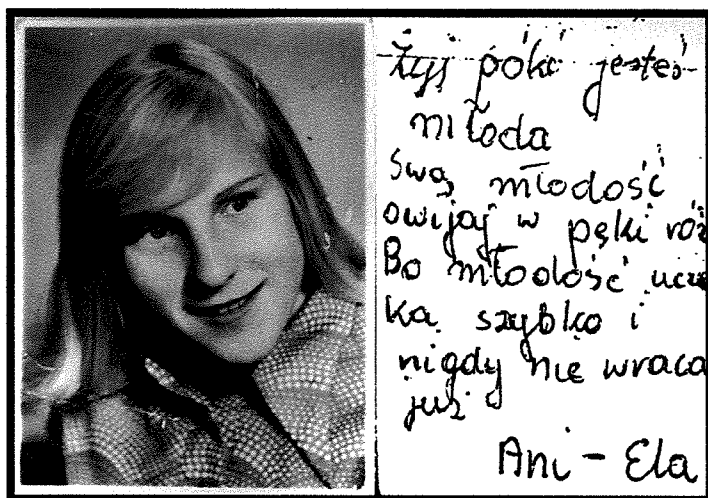 żyj póki jesteś
młoda
Swą młodość
owijaj w pęki róż
Bo młodość ucie
ka szybko i
nigdy nie wraca
już
Ani - Ela